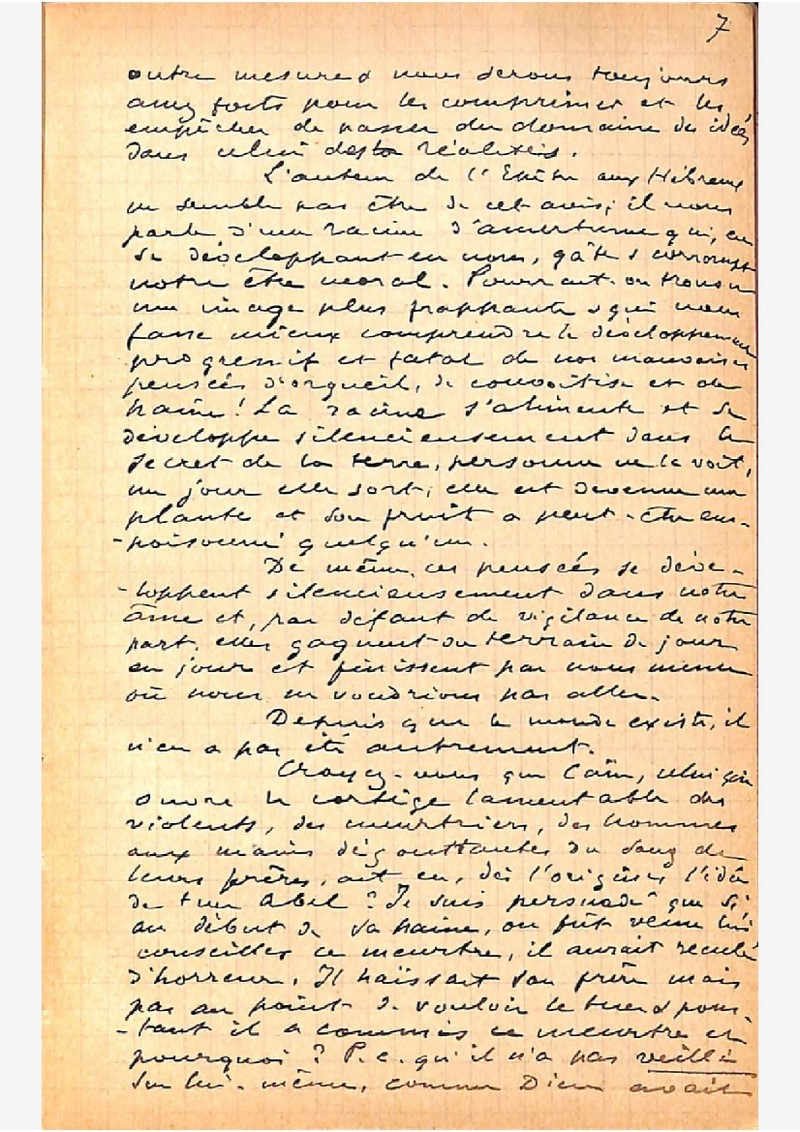 7
outre mesure & nous serons toujours
assez forts pour les comprimer et les
empêcher de passer du domaine des idées
dans celui des réalités.
L'auteur de l'Epître aux Hébreux
ne semble pas être de cet avis; il nous
parle d'une racine d'amertume qui, en
se développant en nous, gâte & corrompt
notre être moral. Pourrait-on trouver
une image plus frappante & qui nous
fasse mieux comprendre le développement
progressif et fatal de nos mauvaises
pensées d'orgueil, de convoitise et de
haine! La racine s'alimente et se
développe silencieusement dans le
secret de la terre, personne ne la voit,
un jour elle sort, elle est devenue une
plante et son fruit a peut-être em-
-poisonné quelqu'un.
De même, ces pensées se déve-
-loppent silencieusement dans notre
âme et, par défaut de vigilance de notre
part, elles gagnent du terrain de jour
en jour et finissent par nous mener
où nous ne voudrions pas aller.
Depuis que le monde existe, il
n'en a pas été autrement.
Croyez-vous que Caïn, celui qui
ouvre le cortège lamentable des
violents, des meurtriers, des hommes
aux mains dégouttantes du sang de
leurs frères, ait eu, dès l'origine l'idée
de tuer Abel? Je suis persuadé que si
au début de sa haine, on fût venu lui
conseiller ce meurtre, il aurait reculé
d'horreur. Il haïssait son frère mais
pas au point de vouloir le tuer & pour-
-tant il a commis ce meurtre et
pourquoi? P.c. qu'il n'a pas veillé
sur lui-même, comme Dieu avait